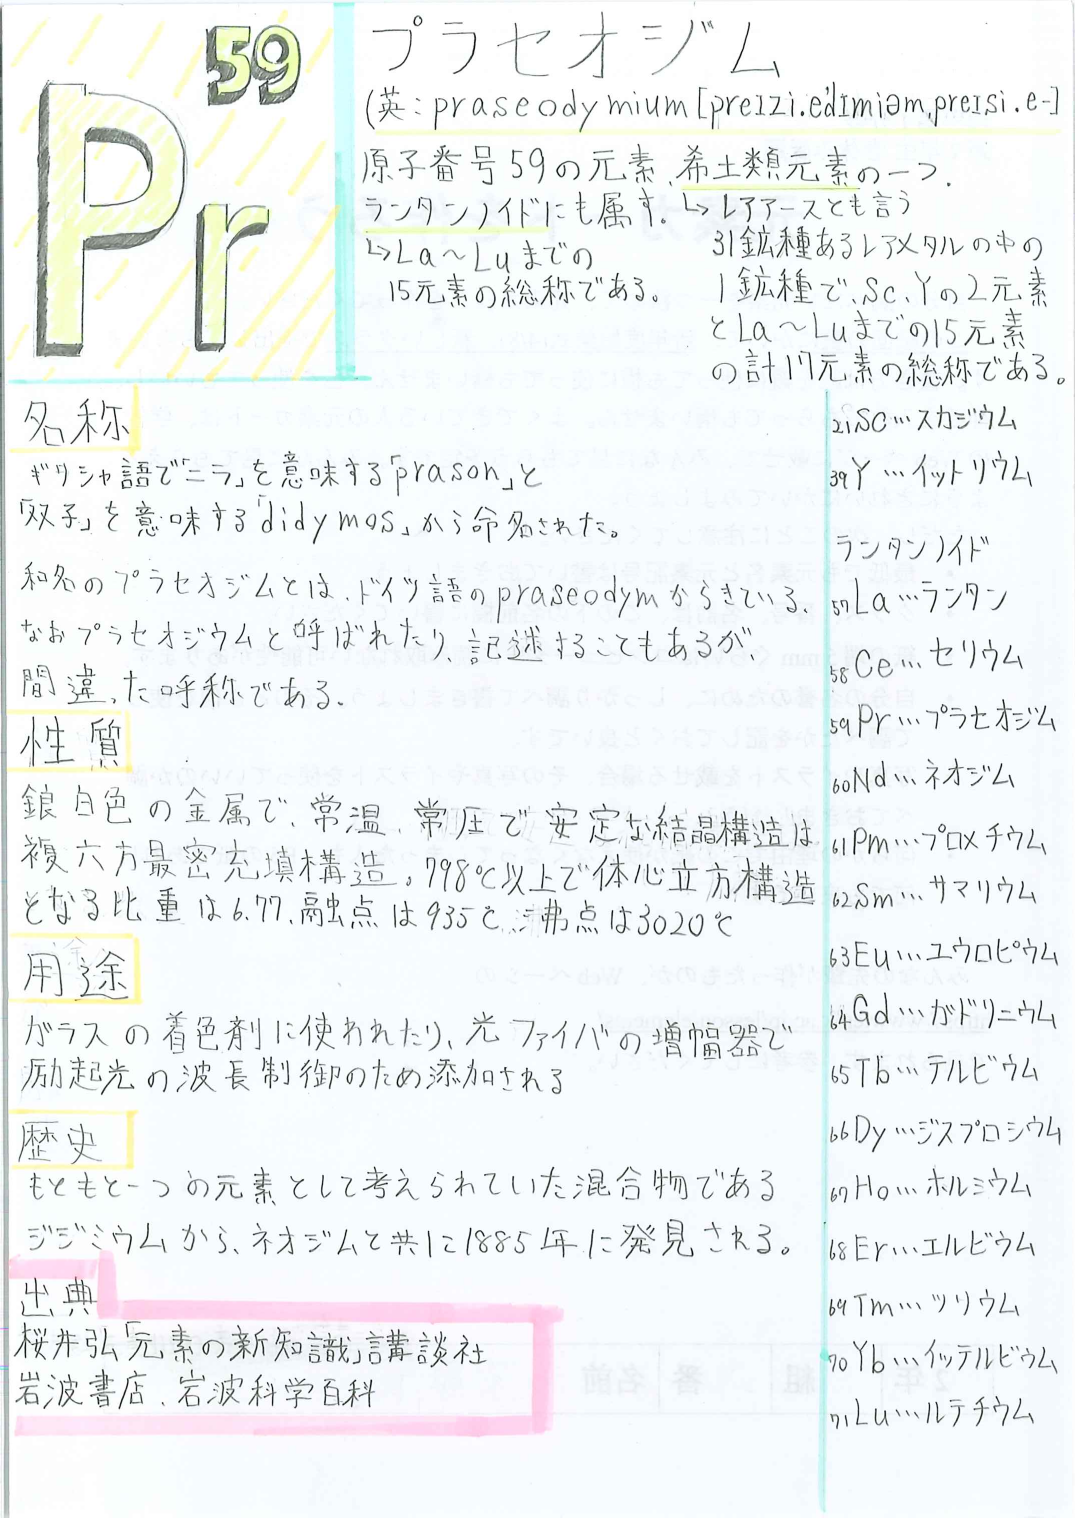 59
Pr
プラセオジム
(英：praseodymium[preɪzi.edɪmiəm,preɪsi.e-]
原子番号59の元素、希土類元素の一つ．
ランタンノイドにも属す。↳レアアースとも言う
↳La〜Luまでの
15元素の総称である。
31鉱種あるレアメタルの中の
1鉱種で、Sc、Yの2元素
とLa〜Luまでの15元素
の計17元素の総称である。
名称
ギリシャ語で「ニラ」を意味するprason」と
「双子」を意味する「didymos」から命名された。
和名のプラセオジムとは、ドイツ語のpraseodymからきている。
なおプラセオジウムと呼ばれたり、記述することもあるが
間違った呼称である．
性質
銀白色の金属で、常温、常圧で安定な結晶構造は、
複六方最密充填構造。798℃以上で体心立方構造
となる比重は6.77、融点は935℃、沸点は3020℃
用途
ガラスの着色剤に使われたり、光ファイバの増幅器で
励起光の波長制御のため添加される
歴史
もともと一つの元素として考えられていた混合物である
ジジミウムから、ネオジムと共に1885年に発見される。
出典
桜井弘「元素の新知識」講談社
岩波書店、岩波科学百科
21Sc…スカジウム
39Y…イットリウム
ランタンノイド
57La…ランタン
58Ce…セリウム
59Pr…プラセオジム
60Nd…ネオジム
61Pm…プロメチウム
62Sm…サマリウム
63Eu…ユウロピウム
64Gd…ガドリニウム
65Tb…テルビウム
66Dy…ジスプロシウム
67Ho…ホルミウム
68Er…エルビウム
69Tm…ツリウム
70Yb…イッテルビウム
71Lu…ルテチウム